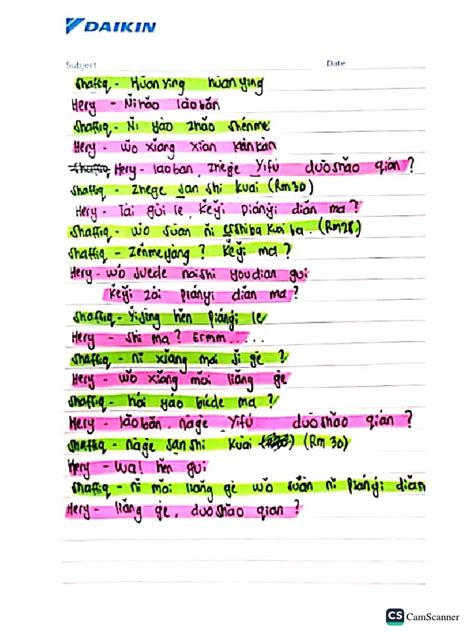 DAIKIN
Subject Date
Shafiq - Húan Ying húan ying
Hery - Ni hǎo lǎo bǎn
Shaffiq - Ni yào zhǎo shénme
Hery - Wǒ xiǎng xian kànkàn
Hery - laoban, zhège Yīfú duōshǎo qián?
Shaffiq - Zhege San Shi kuài (Rm30)
Hery - Tài gùi le, kěyǐ piányi diǎn ma?
Shaffiq - wǒ suan ni èrshiba kuài ba. (Rm28)
Shaffiq - Zěnmeyàng? kěyǐ ma?
Hery - wǒ Juede haishi youdian gui
kěyǐ zài piányi diǎn ma?
Shaffiq - Yǐjīng hěn piányi le
Hery - Shi ma? Ermm.....
Shaffiq - nǐ xiǎng mai Jǐ gè?
Hery - wǒ xiǎng mǎi liǎng gè
Shaffiq - hái yào biéde ma?
Hery - lǎobǎn, nàge Yīfú duōshǎo qián?
Shaffiq - nàge San Shi kuài (Rm 30)
Hery - Wa! hěn gui
Shaffiq - nǐ mǎi liǎng gè wǒ suàn nǐ piányi diǎn
Hery - liǎng gè, duōshǎo qian?
CS CamScanner